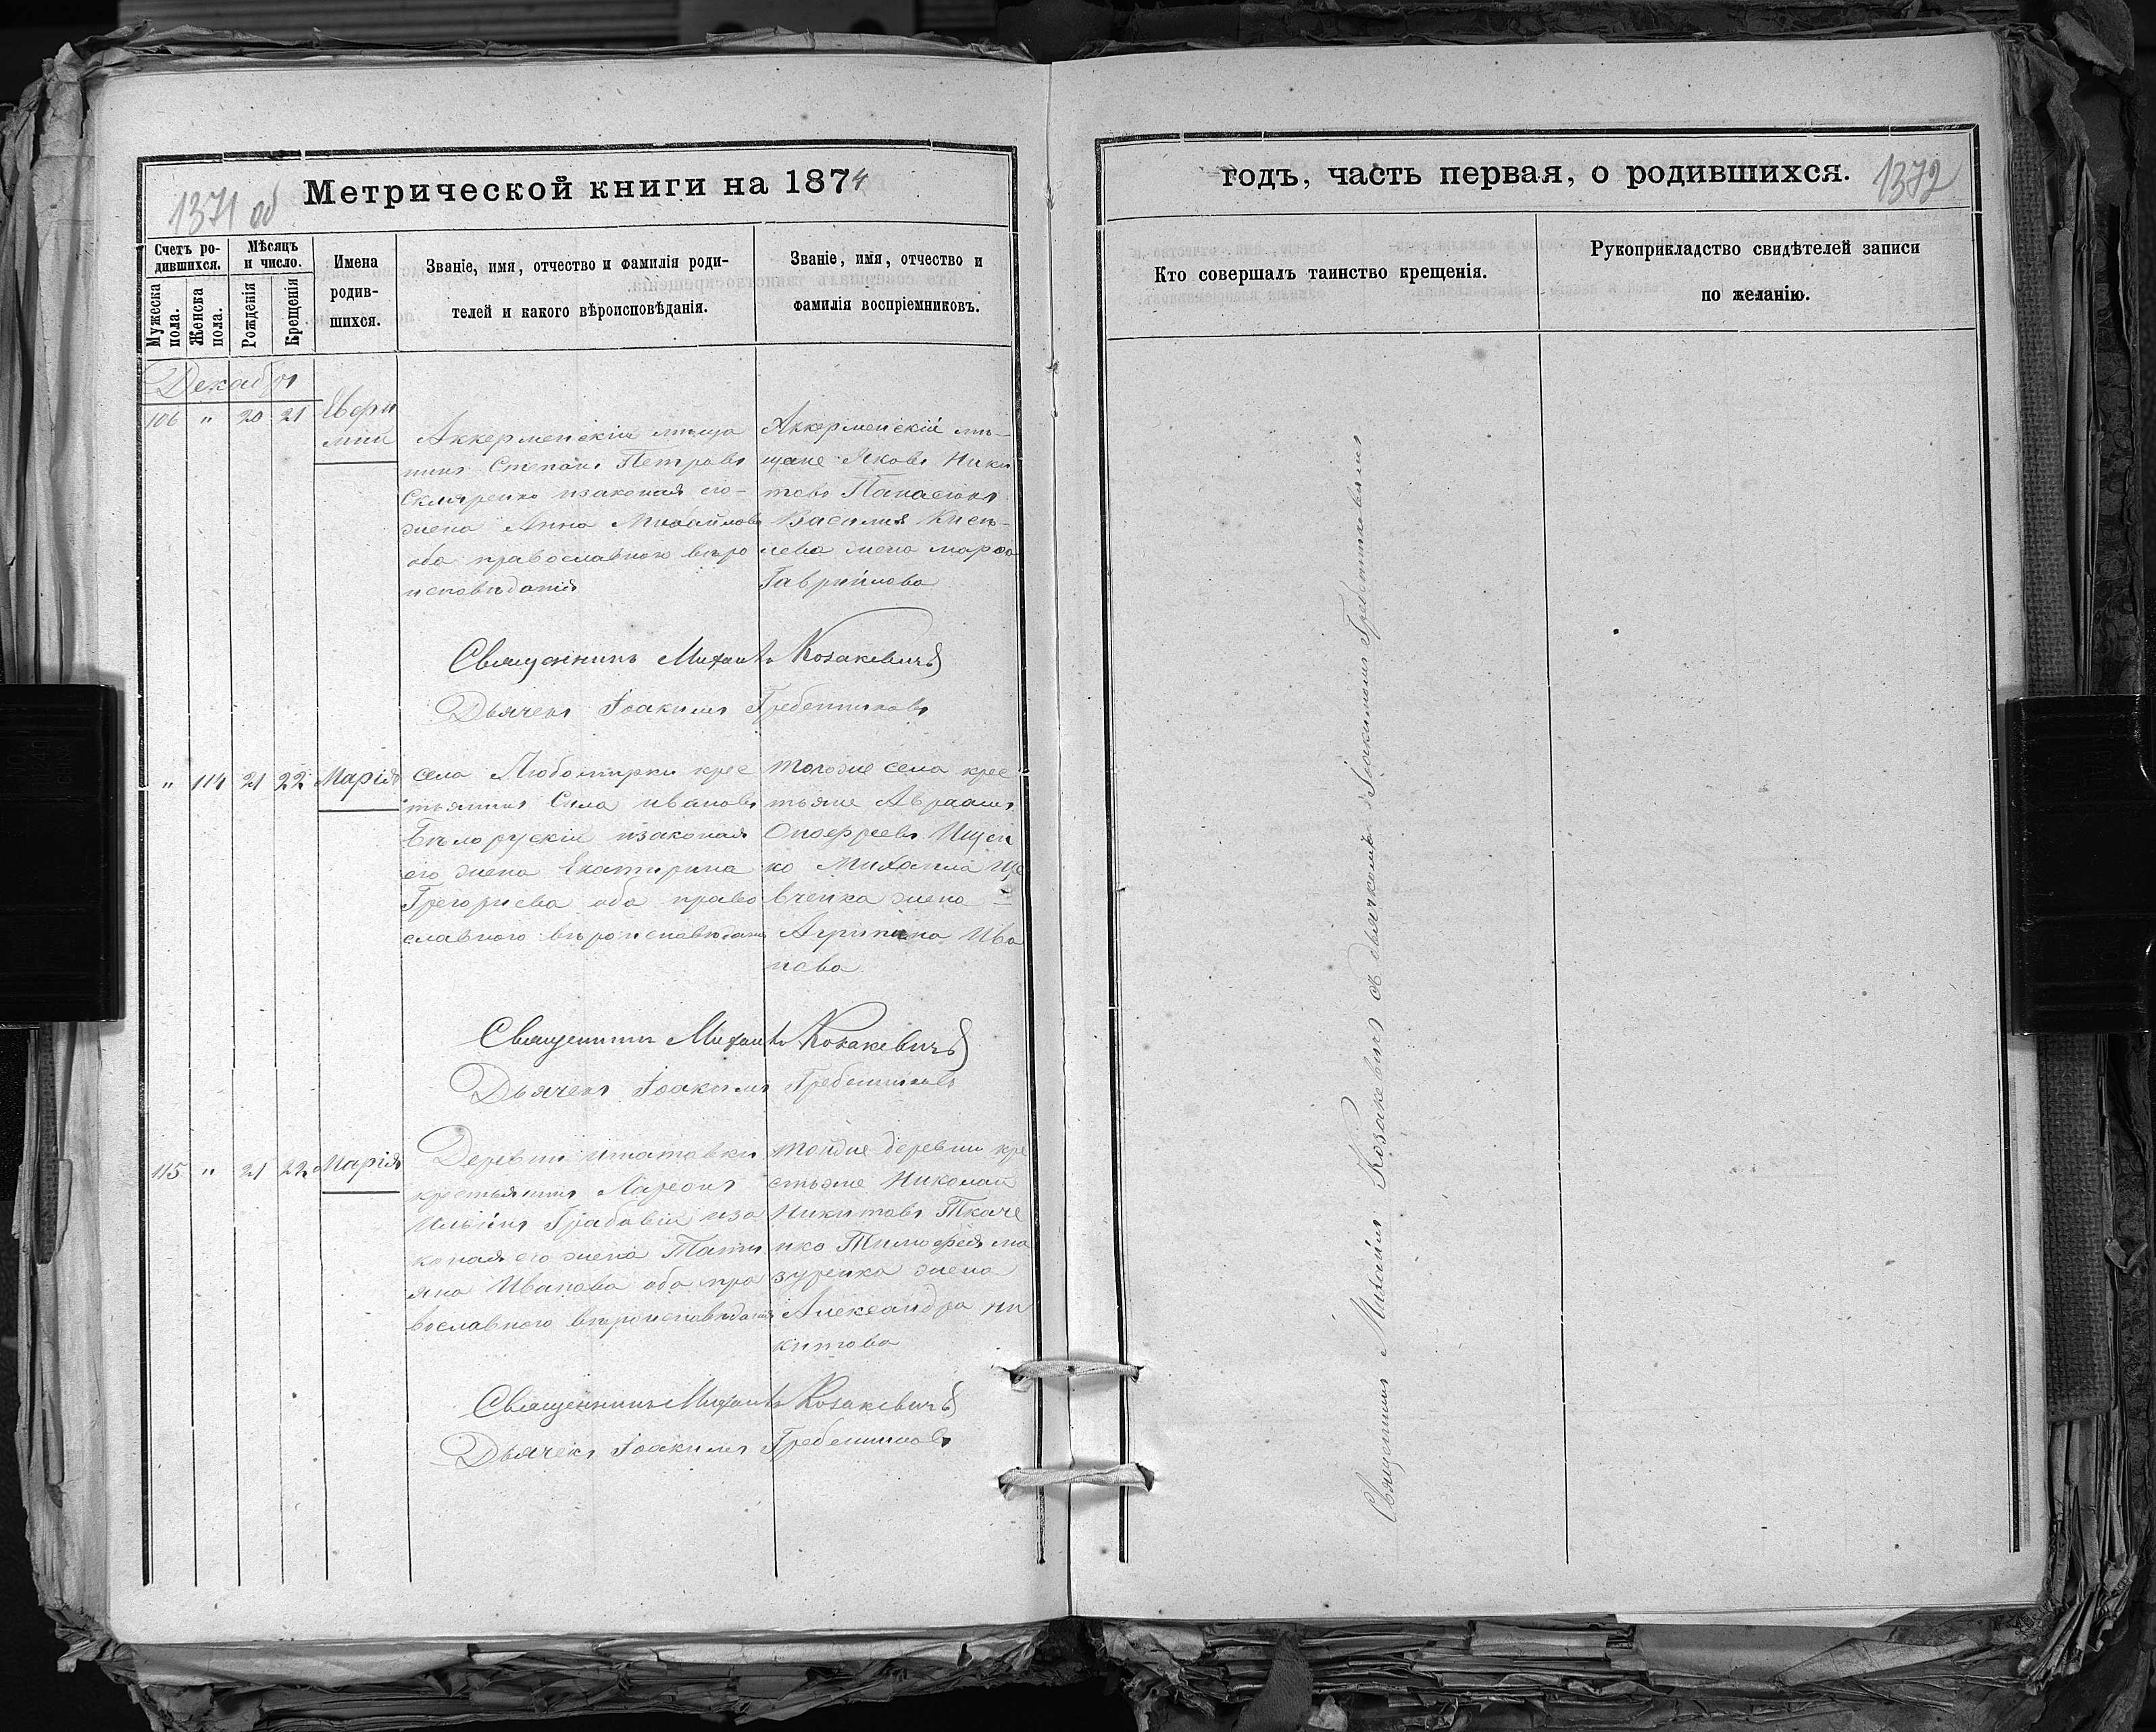 1371 об
Метрической книги на 1874
Счетъ родившихся.
Мѣсяцъ и число.
Мужеска пола.
Женска пола.
Рожденія
Крещенія
Имена родив-
шихся.
Званіе, имя, отчество и фамилія роди-
телей и какого вѣроисповѣданія.
Званіе, имя, отчество и
фамилія воспріемниковъ.
Декабрь
106 " 20 21
Аккерменскій меща
нинъ Степанъ Петровъ
Скляренко изаконая его-
жена Анна Михайлова
оба православного веро
исповѣданія
Аккерменскій мѣ-
щане Яковъ Ники
товъ Панасюкъ
Василия Кисе-
лева жена марфа
Гаврийлова
Священникъ Михаилъ Козакевичъ
Дьячекъ Іоакимъ Гребенниковъ
" 114 21 22 Марія
села Любомирки крес
тьянинъ Сила ивановъ
Бѣлорускій изаконая
его жена Екатирина
Грегориева оба право
славного вѣроисповѣданія
тогоже села крес
тьяне Авраамъ
Онофреевъ Ищен
ко Михаила Ше
вченка жена =
Агрипина Ива
нова
Священникъ Михаилъ Козакевичъ
Дьячекъ Іоакимъ Гребенниковъ
115 " 21 22 Марія
Деревни игнатовки
крестьянинъ Ларионъ
Ильинъ Грабовій иза
коная его жена Тати
яна Иванова оба пра
вославного вѣроисповѣданія
тойже деревни кре
стьяне Николай
Никитовъ Ткаче
нко Тимофея ма
зуренка жена
Александра ни
китова
Священникъ Михаилъ Козакевичъ
Дьячекъ Іоакимъ Гребенниковъ
годъ, часть первая, о родившихся.
1372
Кто совершалъ таинство крещенія.
Рукоприкладство свидѣтелей записи
по желанію.
Священникъ Михаилъ Козакевичъ съ дьячкомъ Іоакимомъ Гребенниковымъ